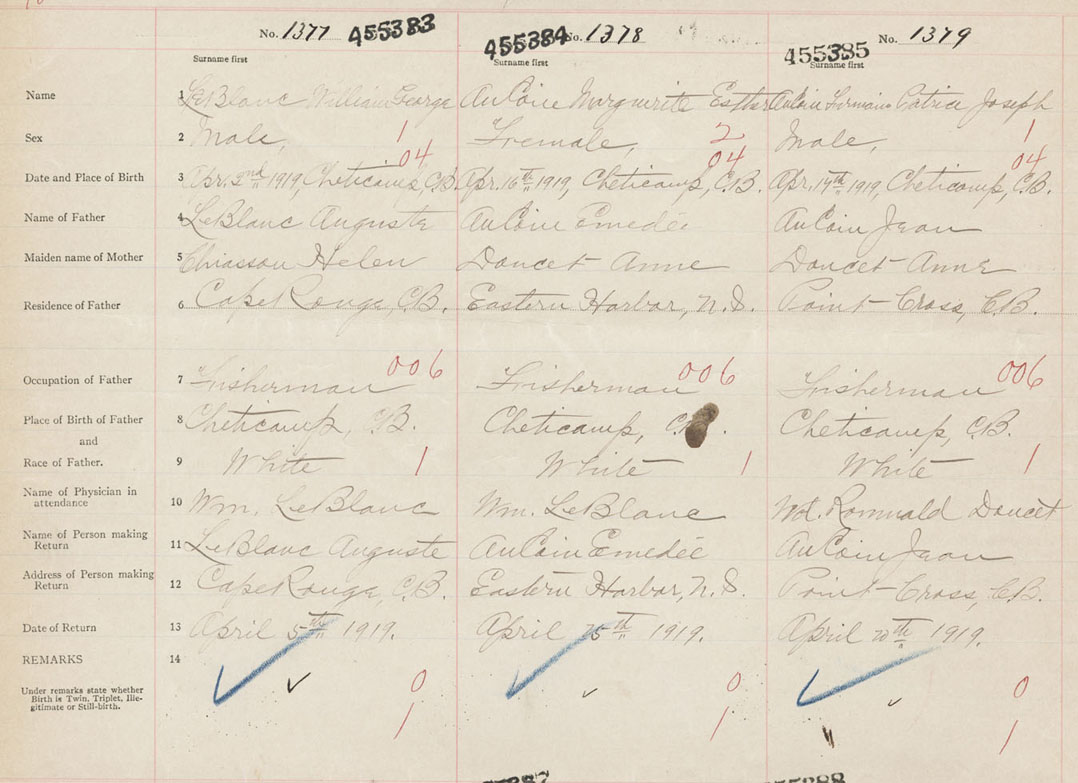 No. 1377 455383 455384 No. 1378 No. 1379 455385
Surname first Surname first Surname first
Name 1 LeBlanc William George AuCoin Marguerite Esther AuCoin Firmain Patrice Joseph
Sex 2 Male, 1 Fremale, 2 Male, 1
04 04 04
Date and Place of Birth 3 Apr. 2nd 1919, Cheticamp, C.B. Apr. 16th 1919, Cheticamp, C.B. Apr. 19th 1919, Cheticamp, C.B.
Name of Father 4 LeBlanc Auguste AuCoin Emedée AuCoin Jean
Maiden name of Mother 5 Chiasson Helen Doucet Anne Doucet Anne
Residence of Father 6 Cape Rouge, C.B. Eastern Harbor, N.S. Point Cross, C.B.
Occupation of Father 7 Frisherman 006 Frisherman 006 Frisherman 006
Place of Birth of Father 8 Cheticamp, C.B. Cheticamp, C. Cheticamp, C.B.
and
Race of Father. 9 White 1 White 1 White 1
Name of Physician in
attendance 10 Wm. LeBlanc Wm. LeBlanc Md. Romuald Doucet
Name of Person making
Return 11 LeBlanc Auguste AuCoin Emedée AuCoin Jean
Address of Person making
Return 12 Cape Rouge, C.B. Eastern Harbor, N.S. Point Cross, C.B.
Date of Return 13 April 5th 1919. April 25th 1919. April 20th 1919.
REMARKS 14
Under remarks state whether
Birth is Twin, Triplet, Ille-
gitimate or Still-birth.
0 0 0
1 1 1